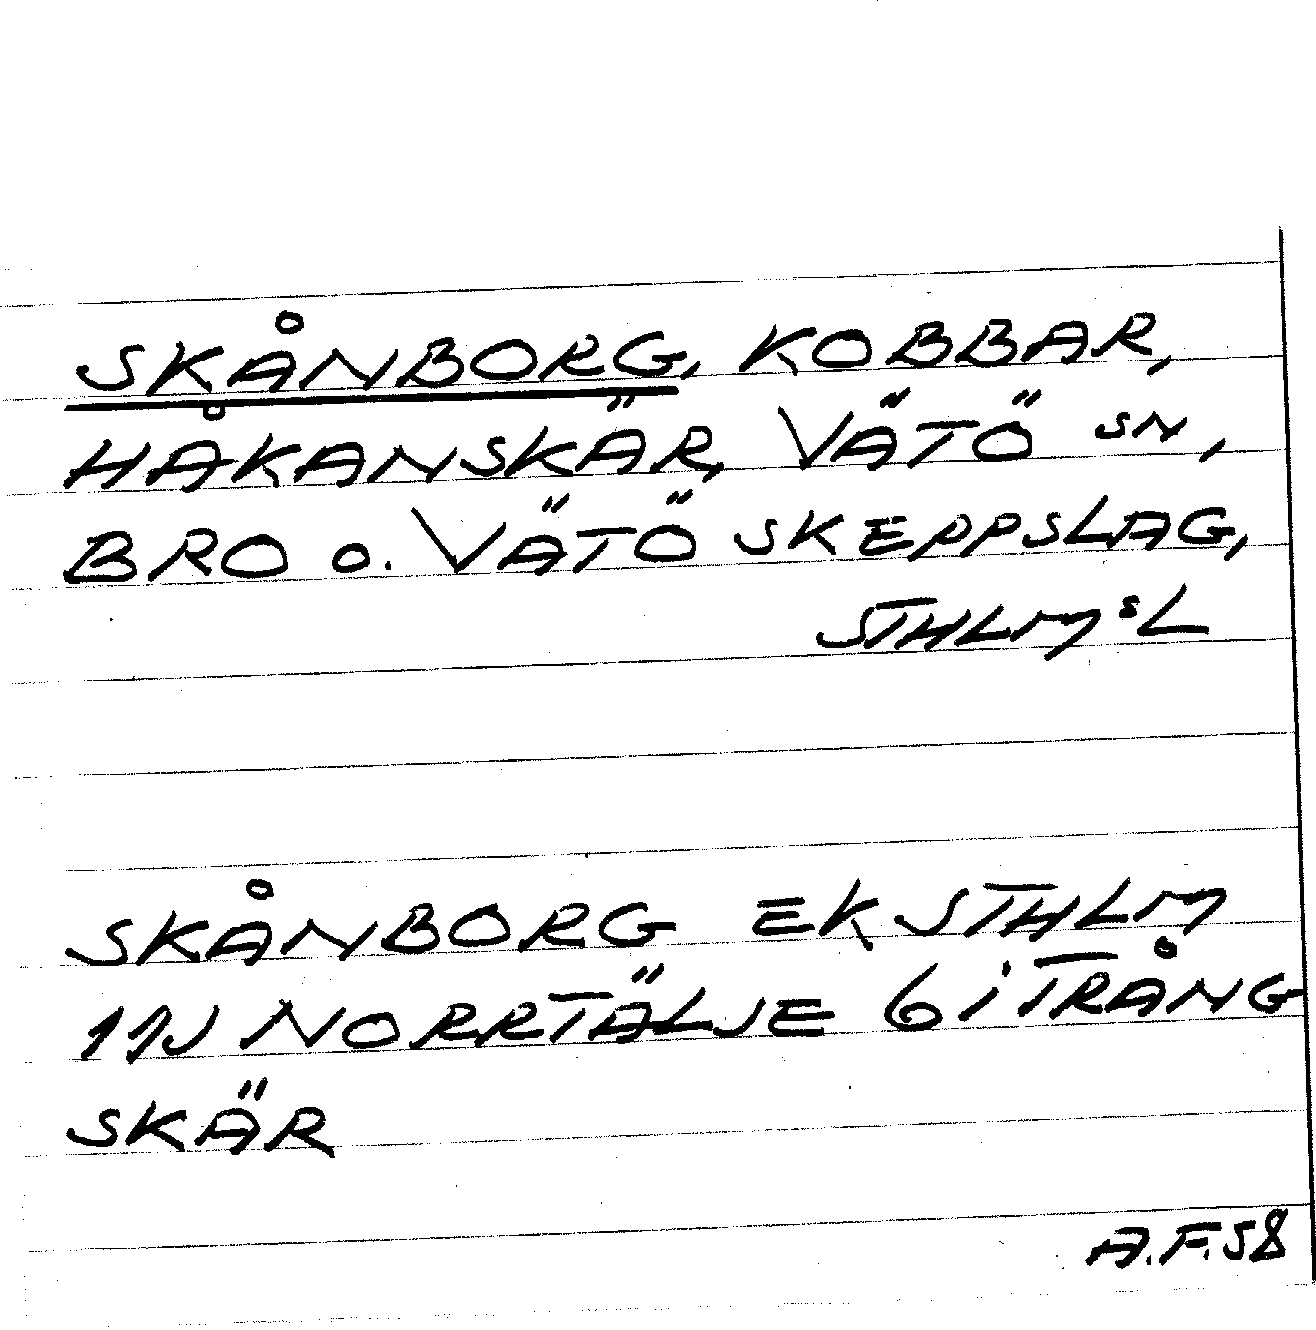 SKÅNBORG, KOBBAR,
HÅKANSKÄR, VÄTÖ SN,
BRO o. VÄTÖ SKEPPSLAG,
STHLMSL
SKÅNBORG EK STHLM
11J NORRTÄLJE 6i TRÅNG
SKÄR
A.F. 58